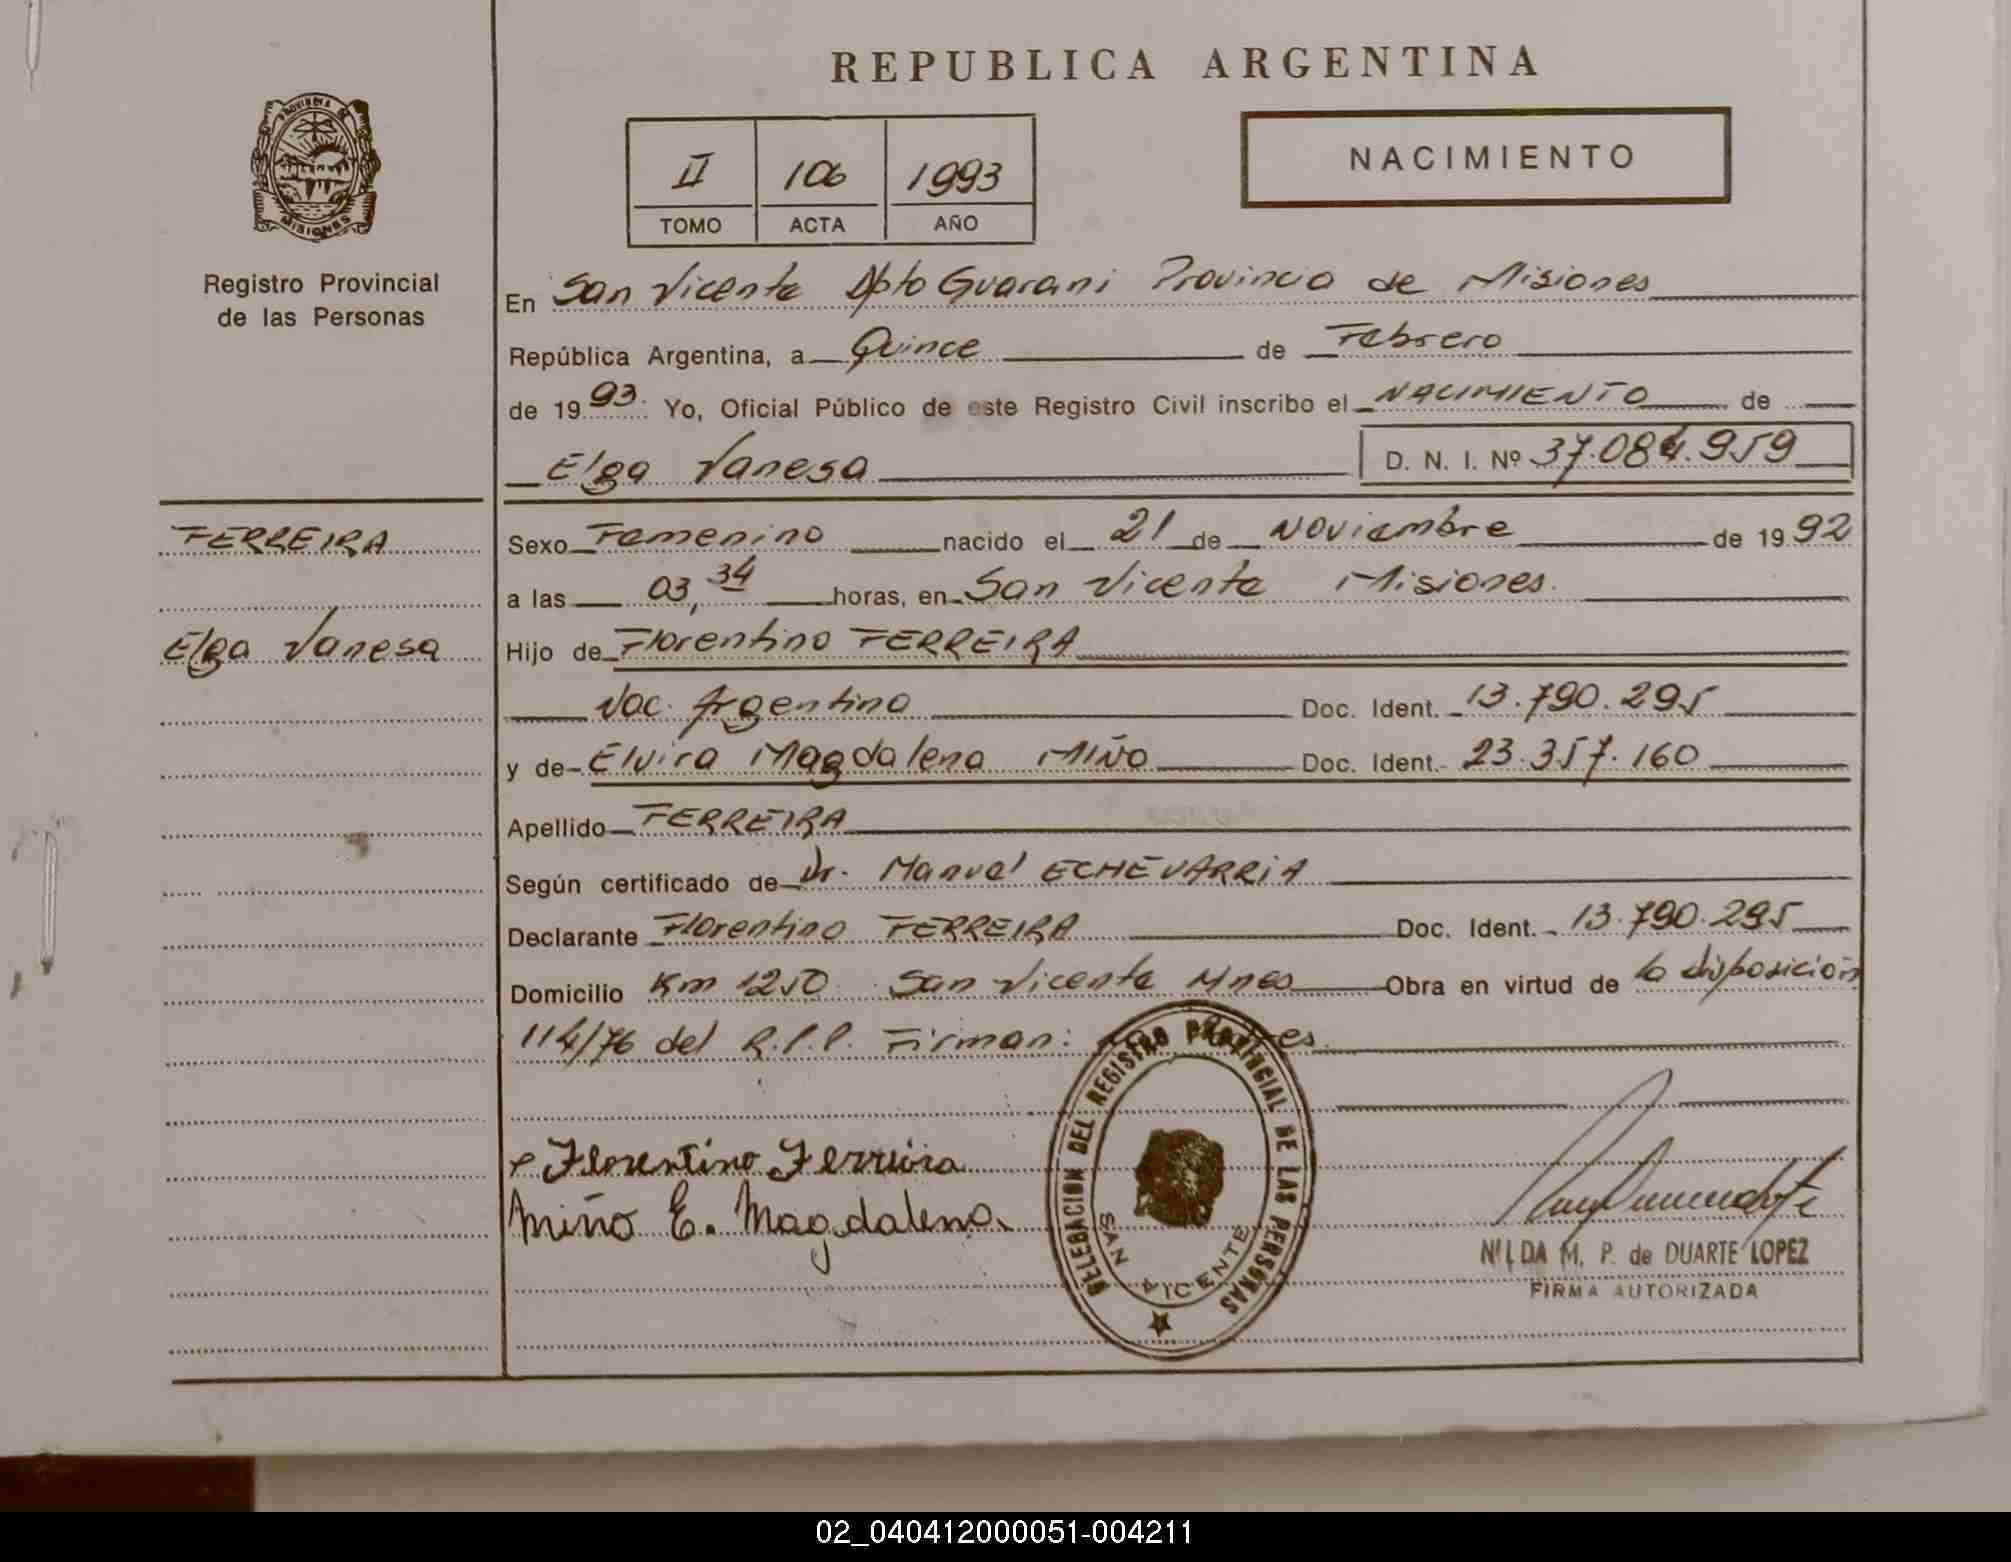 REPUBLICA ARGENTINA
PROVINCIA DE
MISIONES
Registro Provincial
de las Personas
II 106 1993
TOMO ACTA AÑO
NACIMIENTO
En San Vicente Dpto Guarani Provincia de Misiones
República Argentina, a Quince de Febrero
de 1993. Yo, Oficial Público de este Registro Civil inscribo el NACIMIENTO de
Elga Vanesa D. N. I. Nº 37.084.959
FERREIRA
Elga Vanesa
Sexo Femenino nacido el 21 de Noviembre de 1992
a las 03,34 horas, en San Vicente Misiones.
Hijo de Florentino FERREIRA
Nac. Argentina Doc. Ident. 13.790.295
y de Elvira Magdalena MIÑO Doc. Ident. 23.357.160
Apellido FERREIRA
Según certificado de Dr. Manuel ECHEVARRIA
Declarante Florentino FERREIRA Doc. Ident. 13.790.295
Domicilio Km 1250 San Vicente Mnes Obra en virtud de la disposición
114/76 del R.P.P. Firman:
Florentino Ferreira
Miño E. Magdalena
DELEGACION DEL REGISTRO PROVINCIAL DE LAS PERSONAS
SAN VICENTE
NILDA M. P. de DUARTE LOPEZ
FIRMA AUTORIZADA
02_040412000051-004211